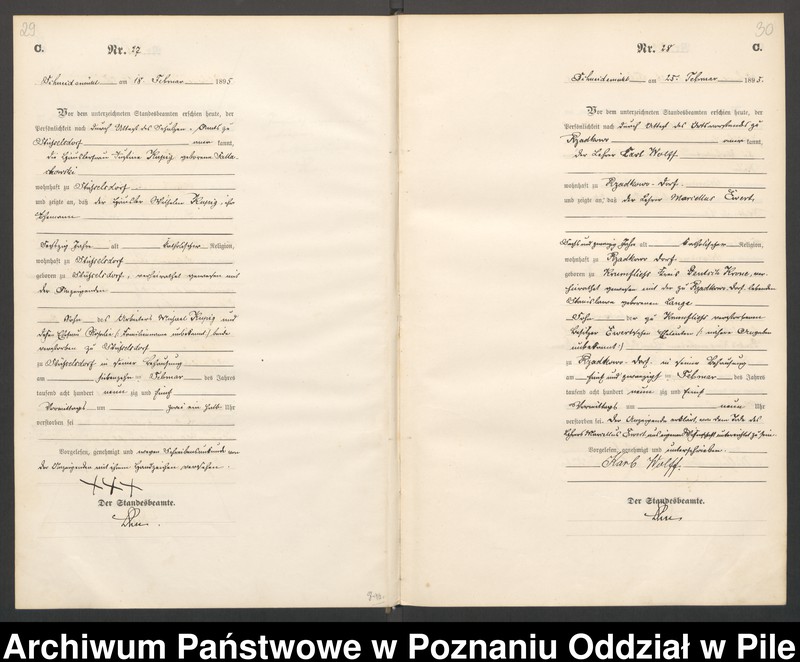 29
C.
Nr. 27
Schneidemühl am 18. Februar 1895
Vor dem unterzeichneten Standesbeamten erschien heute, der
Persönlichkeit nach durch Attest des Schulzen-Amts zu
Stüsselsdorf aner kannt,
die Häuslerfrau geborene
wohnhaft zu Stüsselsdorf
und zeigte an, daß der Häusler Wilhelm ihr
Ehemann
Sechzig Jahre alt katholischer Religion,
wohnhaft zu Stüsselsdorf
geboren zu Stüsselsdorf, verheirathet gewesen mit
der Anzeigenden
Sohn des Arbeiters Michael und
dessen Ehefrau Rosalie (Familienname unbekannt) beide
verstorben zu Stüsselsdorf
zu Stüsselsdorf in seiner Behausung
am siebenzehn ten Februar des Jahres
tausend acht hundert neun zig und fünf
Vormittags um zwei ein halb Uhr
verstorben sei
Vorgelesen, genehmigt und wegen Schreibensunkunde von
der Anzeigenden mit ihrem Handzeichen versehen.
+++
Der Standesbeamte.
30
Nr. 28
C.
Schneidemühl am 25. Februar 1895.
Vor dem unterzeichneten Standesbeamten erschien heute, der
Persönlichkeit nach durch Attest des Ortsvorstandes zu
Rzadkowo aner kannt,
der Lehrer Carl Wolff
wohnhaft zu Rzadkowo-Dorf
und zeigte an, daß der Lehrer Marcellus Ewert,
Sechs und zwanzig Jahre alt katholischer Religion,
wohnhaft zu Rzadkowo Dorf
geboren zu Kreis Deutsch Krone, ver-
heirathet gewesen mit der zu Rzadkowo Dorf lebenden
Stanislawa geborenen Lange
Sohn der zu verstorbenen
Besitzer Ewert'schen Eheleuten (nähere Angaben
unbekannt)
zu Rzadkowo-Dorf in seiner Behausung
am fünf und zwanzigst en Februar des Jahres
tausend acht hundert neun zig und fünf
Vormittags um neun Uhr
verstorben sei. Der Anzeigende erklärt, von dem Tode des
Lehrers Marcellus Ewert aus eigener Wissenschaft unterrichtet zu sein.
Vorgelesen, genehmigt und unterschrieben.
Karl Wolff.
Der Standesbeamte.
Archiwum Państwowe w Poznaniu Oddział w Pile